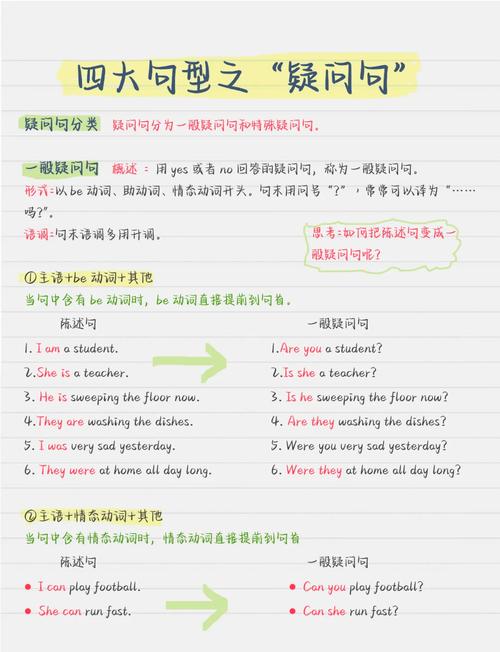 四大句型之“疑问句”
疑问句分类 疑问句分为一般疑问句和特殊疑问句。
一般疑问句 概述：用 yes 或者 no 回答的疑问句，称为一般疑问句。
形式:以 be 动词、助动词、情态动词开头。句末用问号“?”，常常可以译为“……
吗?”。
语调:句末语调多用升调。
思考:如何把陈述句变成一
般疑问句呢?
①主语+be 动词+其他
当句中含有 be 动词时，be 动词直接提前到句首。
陈述句 一般疑问句
1. I am a student. 1.Are you a student?
2.She is a teacher. 2.Is she a teacher?
3. He is sweeping the floor now. 3. Is he sweeping the floor now?
4.They are washing the dishes. 4. Are they washing the dishes?
5. I was very sad yesterday. 5. Were you very sad yesterday?
6. They were at home all day long. 6. Were they at home all day long?
②主语+情态动词+其他
当句中含有情态动词时，情态动词直接提前到句首
陈述句 一般疑问句
• I can play football. • Can you play football?
• She can run fast. • Can she run fast?